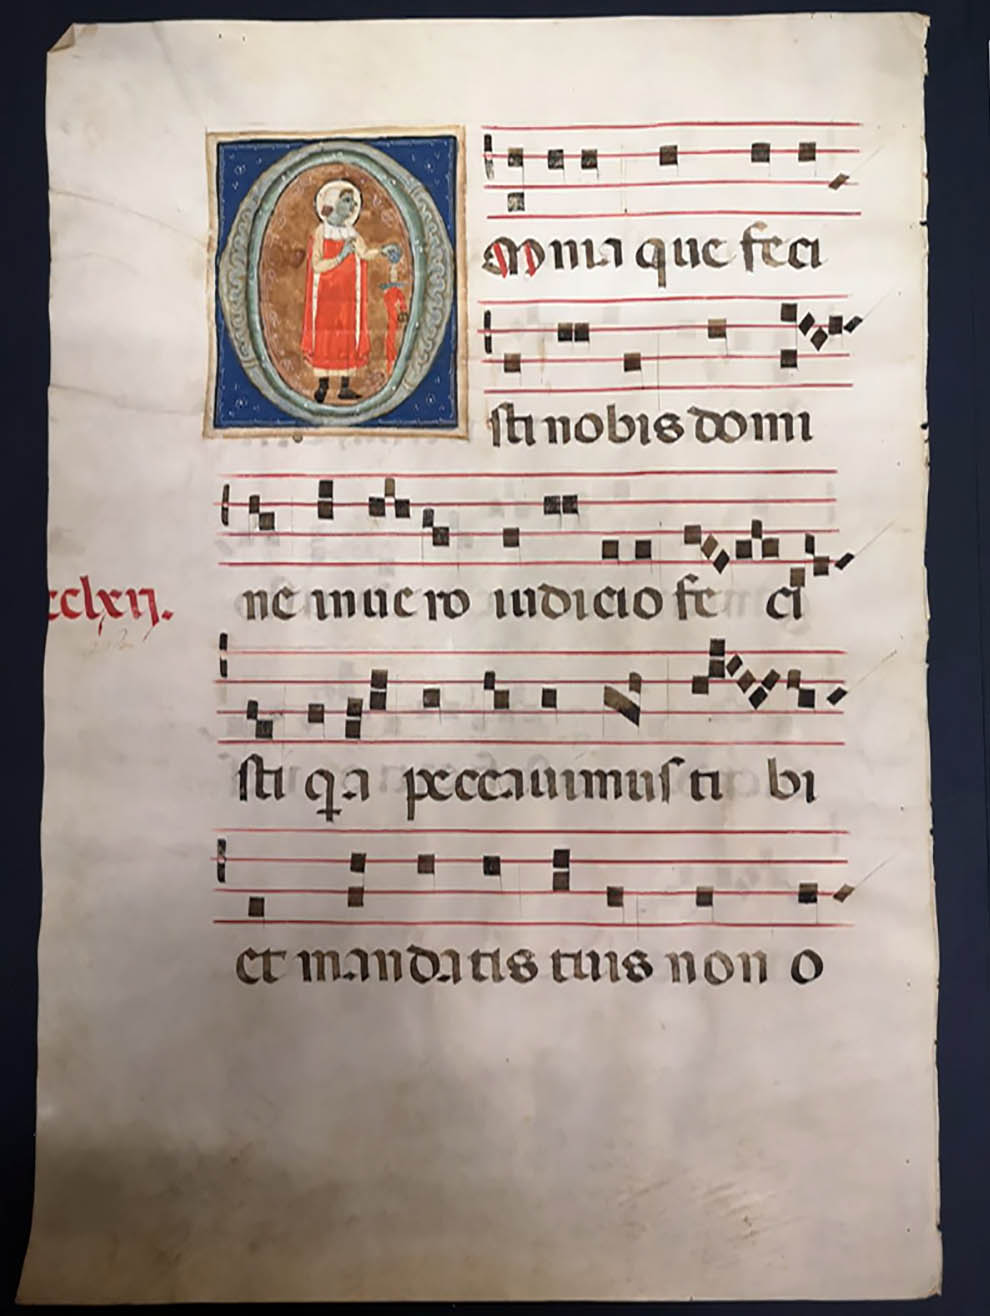 Omnia que feci
sti nobis domi
ne in uero iudicio fe ci
cclxij.
sti q.a peccauimus ti bi
et mandatis tuis non o